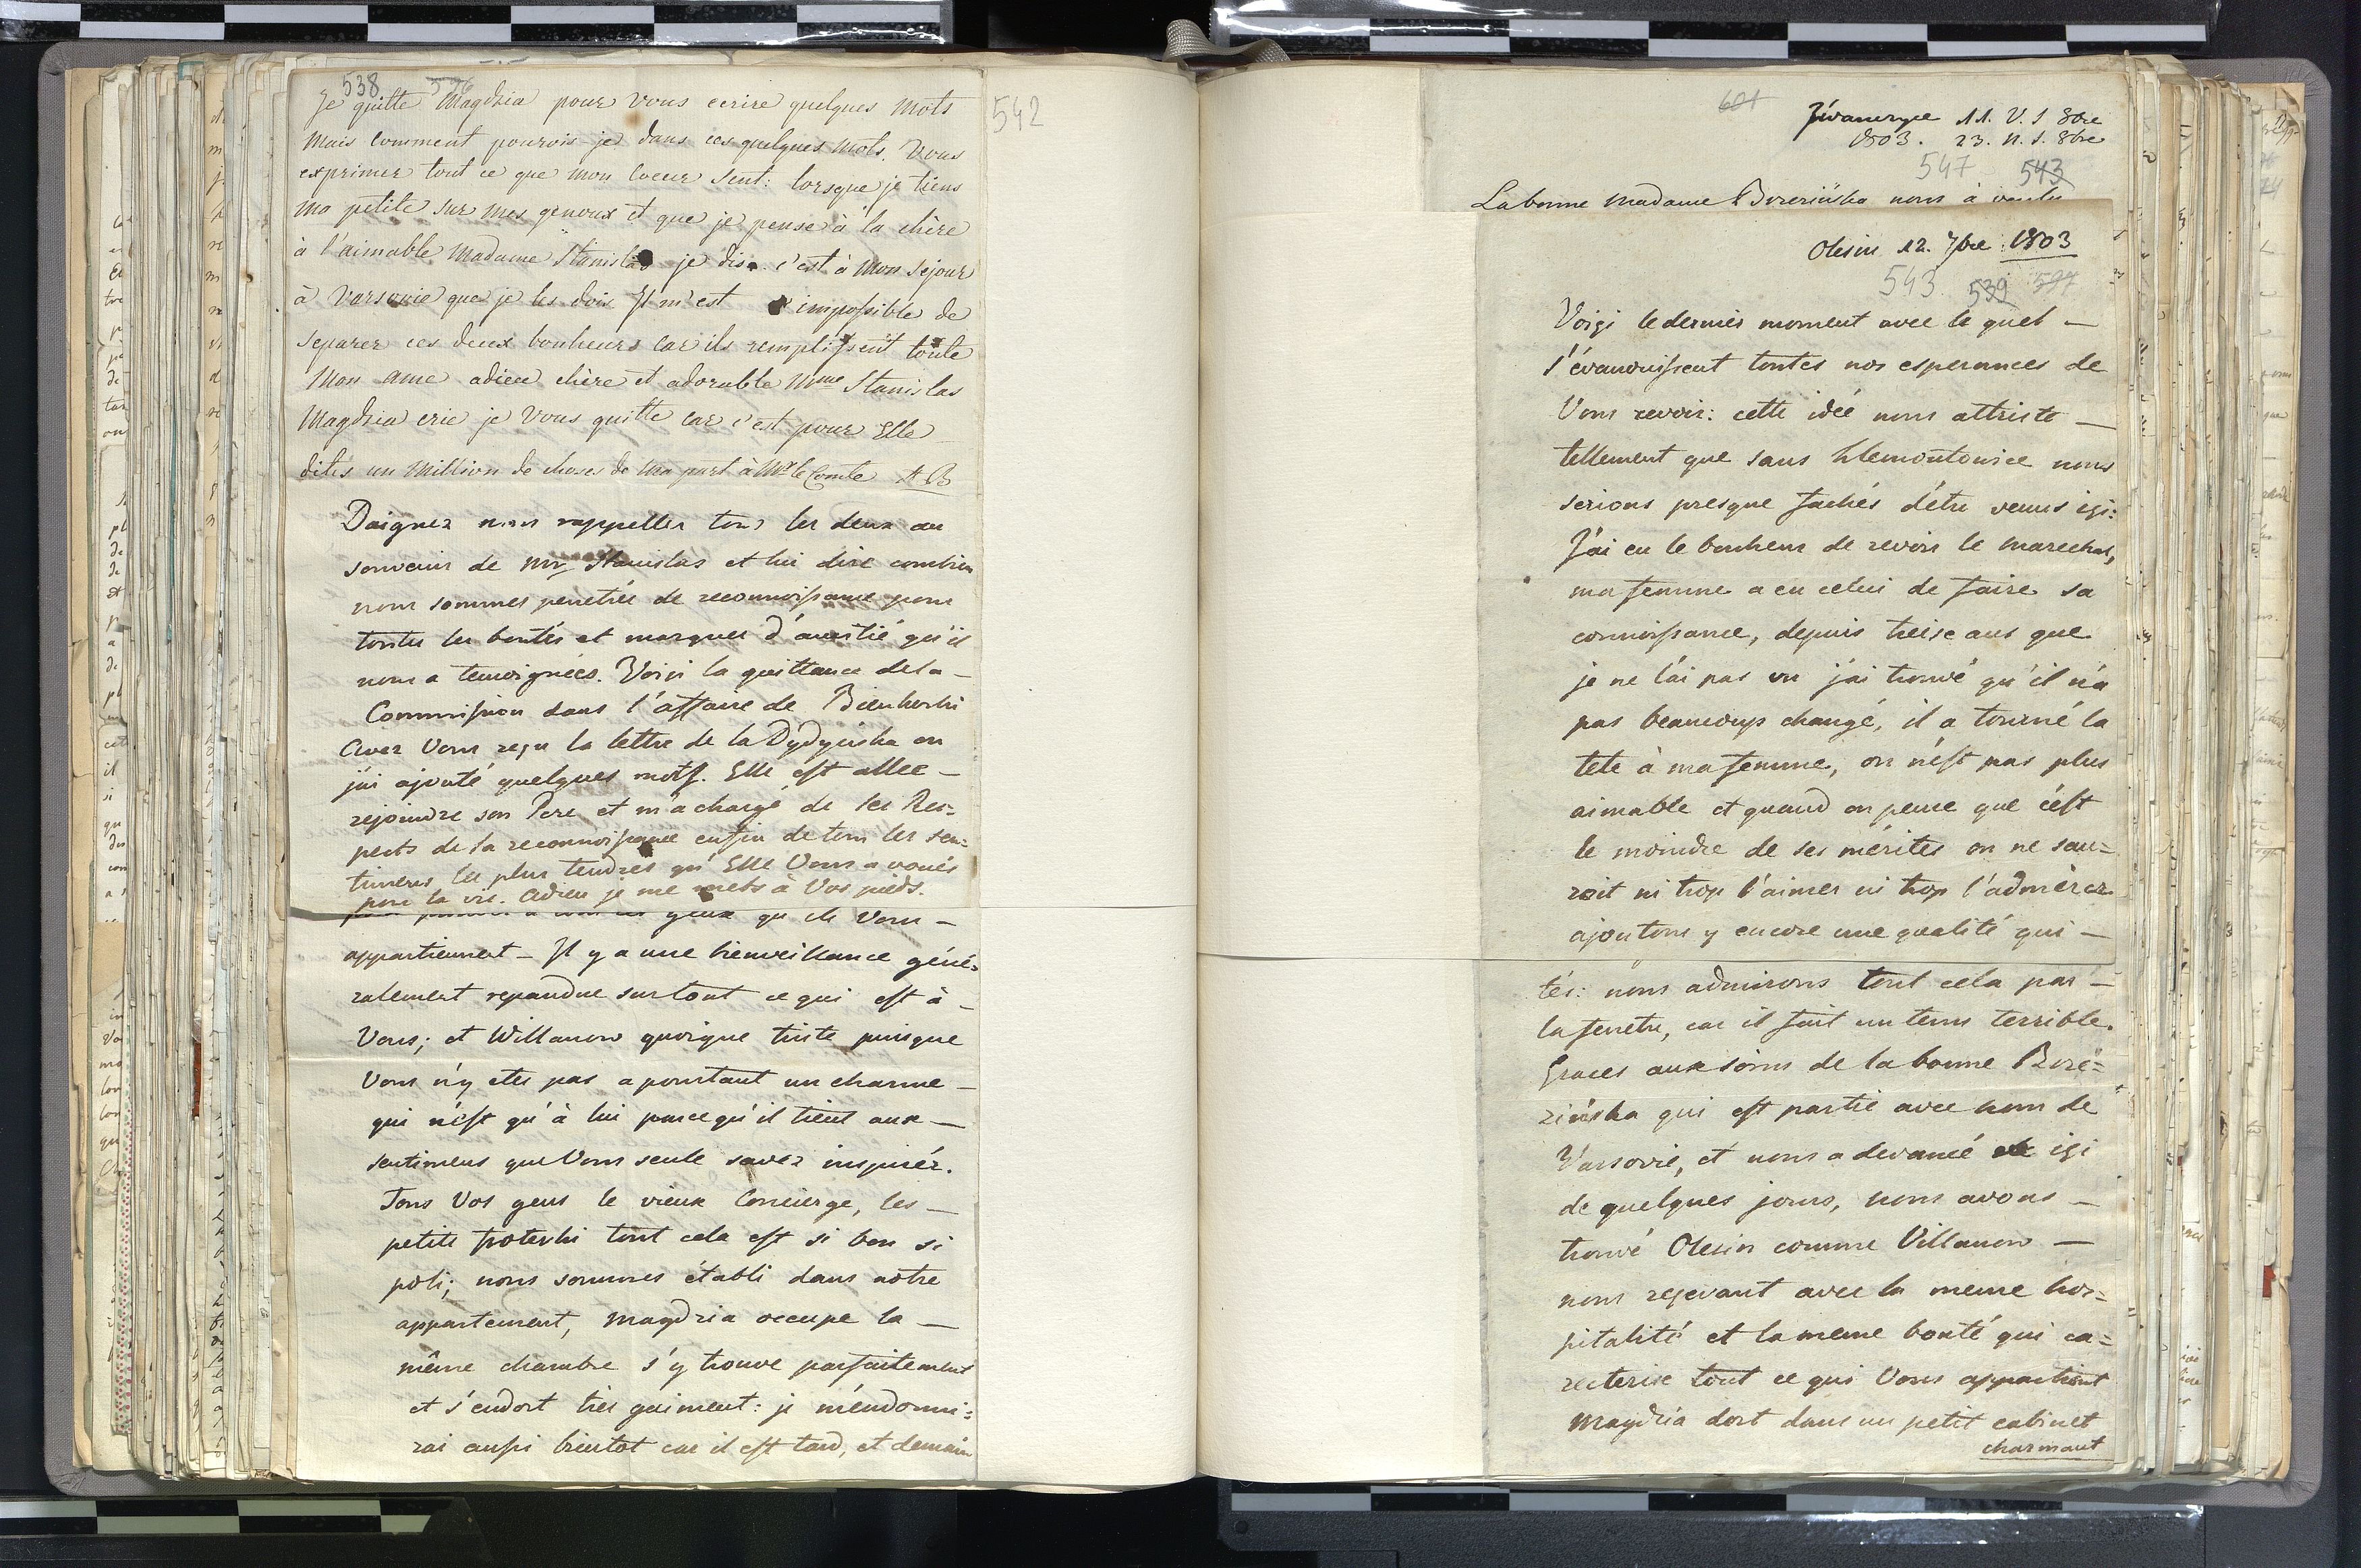 538 596
Je quitte Magdzia pour vous ecrire quelques mots
mais comment pourois-je dans ces quelques mots. Vous
exprimer tout ce que mon coeur sent: lorsque je tiens
ma petite sur mes genoux et que je pense à la chère
à l'aimable Madame Stanislas je dis. c'est à mon sejour
à Varsovie que je les dois Il m'est impossible de
separer ces deux bonheurs car ils remplissent toute
mon ame adieu chère et adorable Mme Stanislas
Magdzia crie je Vous quitte car c'est pour Elle
dites un million de choses de ma part à Mr le Comte A B
542
Daignez nous rappeller tous les deux au
souvenir de Mr Stanislas et lui dire combien
nous sommes penetrés de reconnoissance pour
toutes les bontés et marques d'amitié qu'il
nous a temoignées. Voiçi la quittance de la –
Commission dans l'affaire de Bienkoski
Avez Vous reçu la lettre de la Dydyńska ou
j'ai ajouté quelques mots. Elle est allee –
rejoindre son Pere et m'a chargé de ses Res=
pects de sa reconnoissance enfin de tous les sen=
timens les plus tendres qu'Elle Vous a voués
pour la vie. Adieu je me mets à Vos pieds.
yeux qu'ils Vous –
appartiennent – Il y a une bienveillance géné=
ralement repandue sur tout ce qui est à –
Vous; et Willanow quoique triste puisque
Vous n'y etes pas a pourtant un charme –
qui n'est qu'à lui parcequ'il tient aux –
sentimens que Vous seule savez inspirér.
Tous Vos gens le vieux Concierge, les –
petits Potocki tout cela est si bon si
poli; nous sommes établi dans notre
appartement, Magdzia occupe la –
même chambre s'y trouve parfaitement
et s'endort très gaiment: je m'éndormi=
rai aussi bientot car il est tard, et demain
601
11. V. S 8bre
1803. 23. N. S. 8bre
547 543
La bonne Madame nous à voulu
Olesin 12. 7bre 1803
543. 539 597
Voiçi le dernier moment avec le quel –
s'évanouissent toutes nos esperances de
Vous revoir: cette idée nous attriste –
tellement que sans Klemontowice nous
serions presque fachés d'étre venus içi:
J'ai eu le bonheur de revoir le marechal,
ma femme a eu celui de faire sa
connoissance, depuis treise ans que
je ne l'ai pas vu j'ai trouvé qu'il n'a
pas beaucoup changé, il a tourné la
tete à ma femme, on n'est pas plus
aimable et quand on pense que c'est
le moindre de ses mérites on ne sau=
roit ni trop l'aimer ni trop l'admirer
ajoutons y encore une qualité qui –
tés: nous admirons tout cela par –
la fenetre, car il fait un tems terrible.
Graces aux soins de la bonne Boze=
zińska qui est partie avec nous de
Varsovie, et nous a devancé içi
de quelques jours, nous avons –
trouvé Olesin comme Villanow –
nous reçevant avec la meme hos=
pitalité et la meme bonté qui ca=
recterise tout ce qui Vous appartient
Magdzia dort dans un petit cabinet
charmant